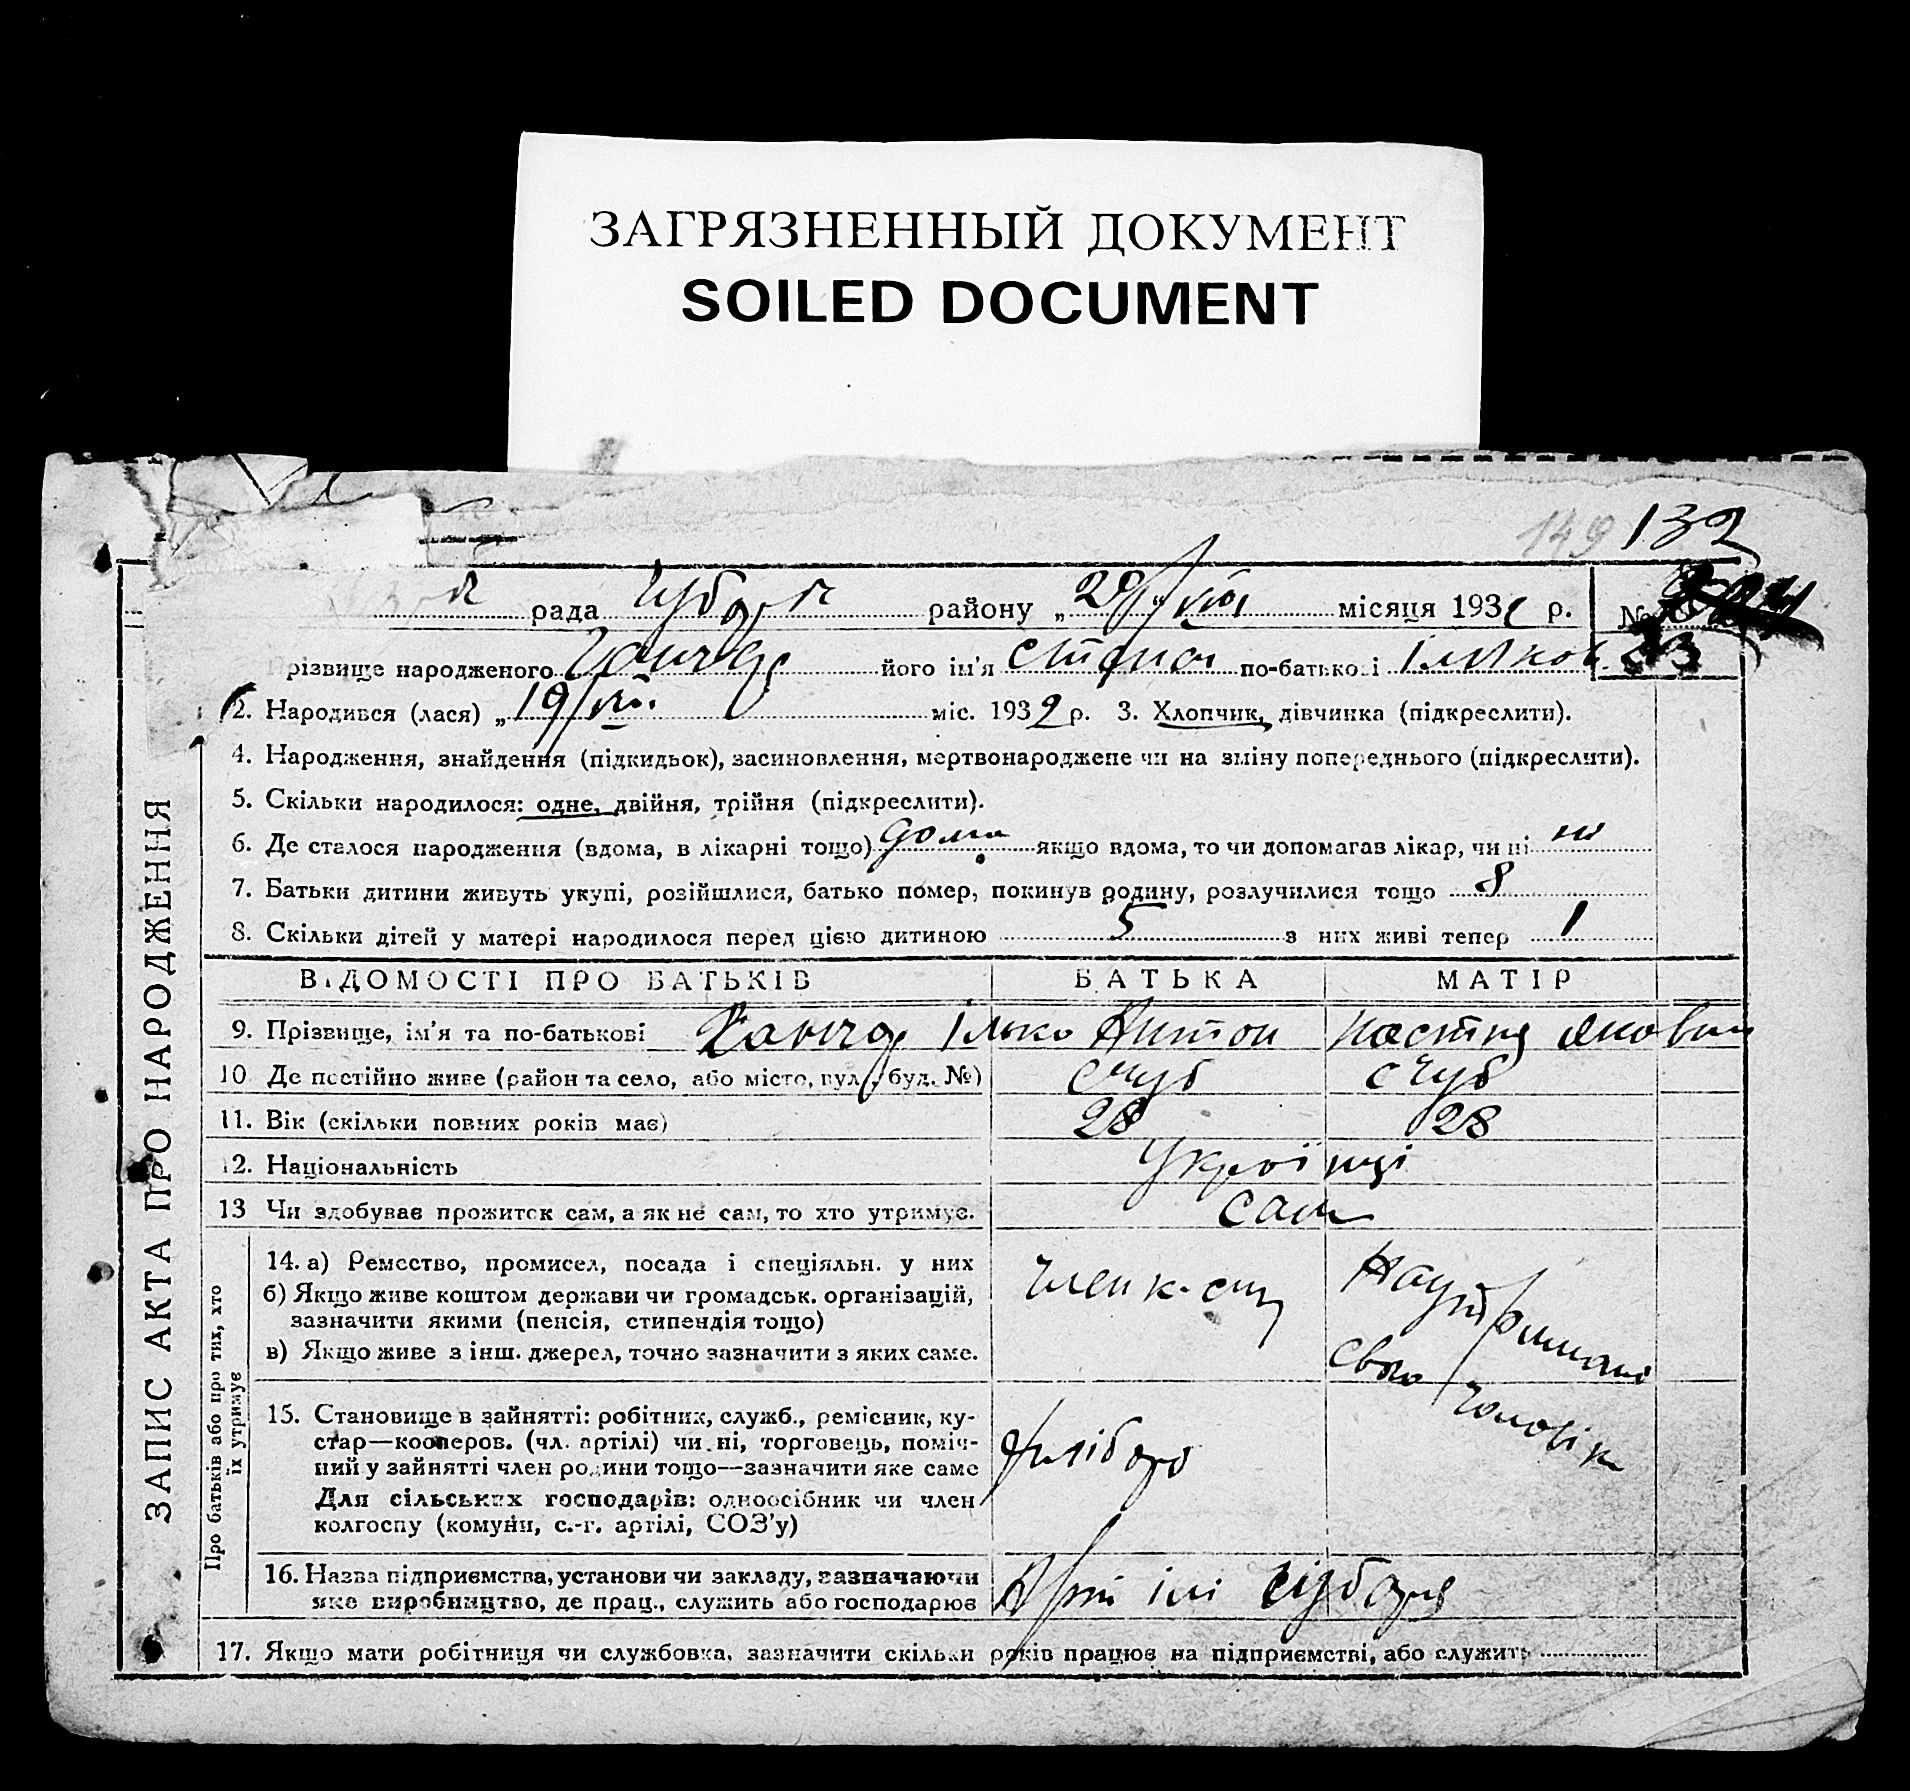 ЗАГРЯЗНЕННЫЙ ДОКУМЕНТ
SOILED DOCUMENT
149 132
рада району „29/VIII місяця 193 р. №
прізвище народженого його ім'я по-батькові
2. Народився (лася) „19/VIII. міс. 1932 р. 3. Хлопчик, дівчинка (підкреслити).
4. Народження, знайдення (підкидьок), засиновлення, мертвонароджене чи на зміну попереднього (підкреслити).
5. Скільки народилося: одне, двійня, трійня (підкреслити).
6. Де сталося народження (вдома, в лікарні тощо) дома якщо вдома, то чи допомагав лікар, чи ні ні
7. Батьки дитини живуть укупі, розійшлися, батько помер, покинув родину, розлучилися тощо 8
8. Скільки дітей у матері народилося перед цією дитиною 5 з них живі тепер 1
ВІДОМОСТІ ПРО БАТЬКІВ БАТЬКА МАТІР
9. Прізвище, ім'я та по-батькові Ілько Антон Настя Яковл
10 Де постійно живе (район та село, або місто, вул., буд. №)
11. Вік (скільки повних років має) 28 28
12. Національність Українці
13 Чи здобуває прожиток сам, а як не сам, то хто утримує. сам
14. а) Ремество, промисел, посада і спеціяльн. у них
б) Якщо живе коштом держави чи громадськ. організацій,
зазначити якими (пенсія, стипендія тощо)
в) Якщо живе з інш. джерел, точно зазначити з яких саме.
член к.
На утриманні
свого чоловіка
15. Становище в зайнятті: робітник, служб., ремісник, ку-
стар—кооперов. (чл. артілі) чи ні, торговець, поміч-
ний у зайнятті член родини тощо—зазначити яке саме
Для сільських господарів: одноосібник чи член
колгоспу (комуни, с.-г. артілі, СОЗ'у)
хлібороб
16. Назва підприємства, установи чи закладу, зазначаючи
яке виробництво, де прац., служить або господарює
Арт ілі
17. Якщо мати робітниця чи службовка, зазначити скільки років працює на підприємстві, або служить
ЗАПИС АКТА ПРО НАРОДЖЕННЯ
Про батьків або про тих, хто
їх утримує